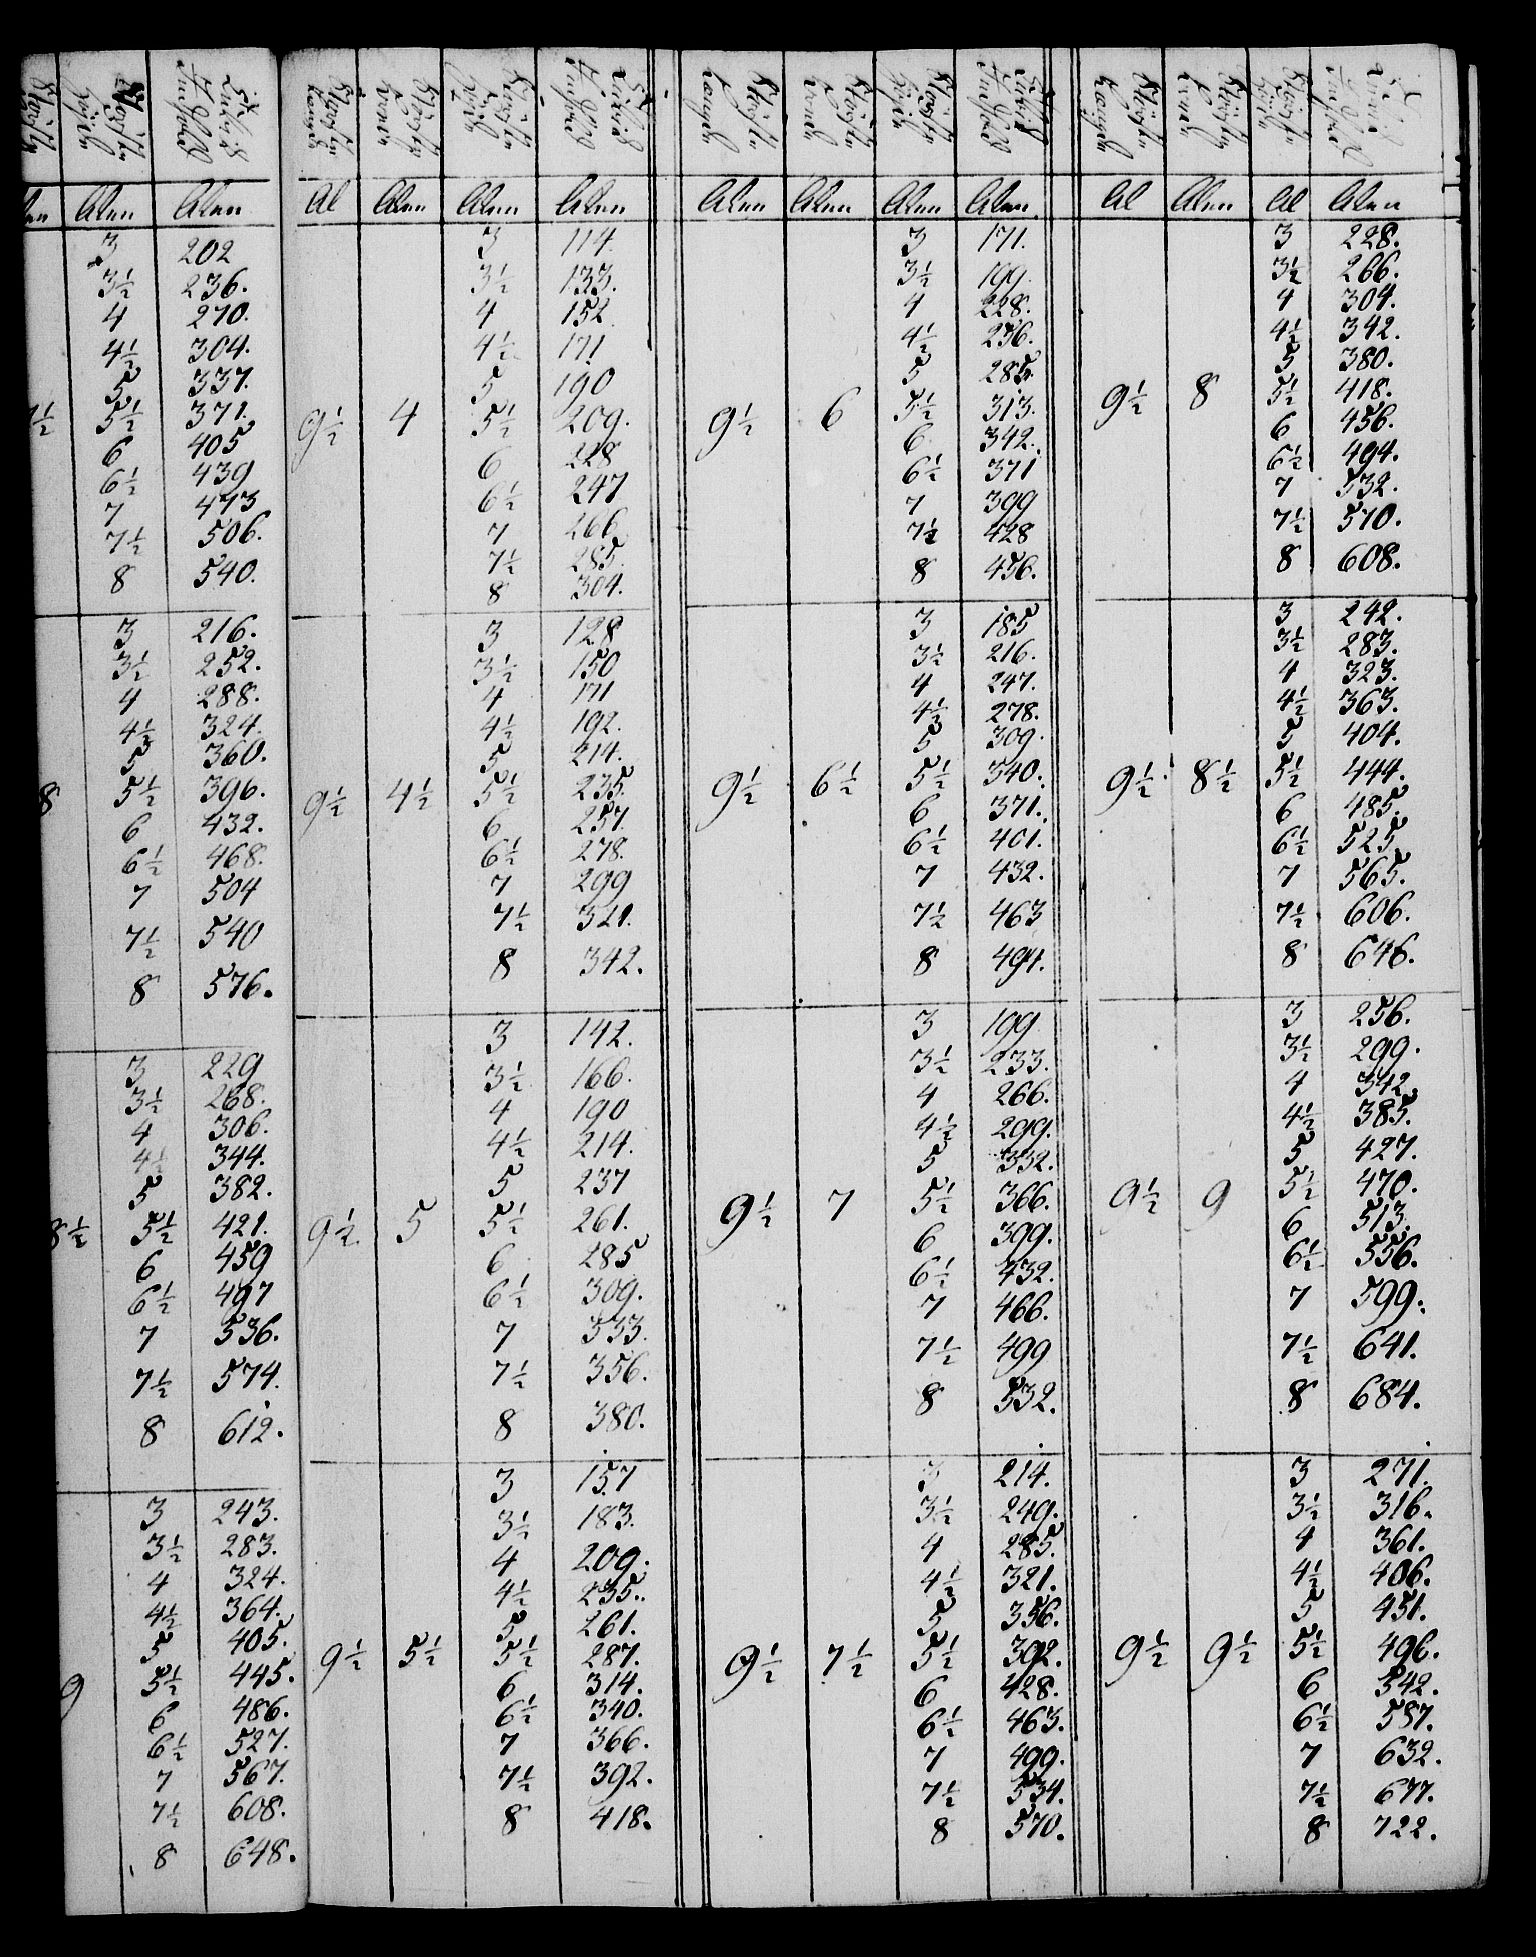 Alnn Alnn
3 202
3½ 236.
4 270.
4½ 304.
5 337.
5½ 371.
6 405
6½ 439
7 473
7½ 506.
8 540.
8
3 216.
3½ 252.
4 288.
4½ 324.
5 360.
5½ 396.
6 432.
6½ 468.
7 504
7½ 540
8 576.
8½
3 229
3½ 268.
4 306.
4½ 344.
5 382.
5½ 421.
6 459
6½ 497
7 536.
7½ 574.
8 612.
9
3 243.
3½ 283.
4 324.
4½ 364.
5 405.
5½ 445.
6 486.
6½ 527.
7 567.
7½ 608.
8 648.
Al Alnn Alnn Alnn
9½ 4
3 114.
3½ 133.
4 152
4½ 171
5 190
5½ 209.
6 228
6½ 247
7 266
7½ 285.
8 304.
9½ 4½
3 128
3½ 150
4 171
4½ 192.
5 214.
5½ 235.
6 257.
6½ 278.
7 299
7½ 321.
8 342.
9½ 5
3 142.
3½ 166.
4 190
4½ 214.
5 237
5½ 261.
6 285
6½ 309.
7 333.
7½ 356.
8 380.
9½ 5½
3 157
3½ 183.
4 209.
4½ 235.
5 261.
5½ 287.
6 314.
6½ 340.
7 366.
7½ 392.
8 418.
Alnn Alnn Alnn Alnn
9½ 6
3 171.
3½ 199.
4 228.
4½ 256.
5 285.
5½ 313.
6 342.
6½ 371
7 399
7½ 428
8 456.
9½ 6½
3 185
3½ 216.
4 247.
4½ 278.
5 309.
5½ 340.
6 371.
6½ 401.
7 432.
7½ 463
8 494.
9½ 7
3 199
3½ 233.
4 266.
4½ 299.
5 332.
5½ 366.
6 399.
6½ 432.
7 466.
7½ 499
8 532.
9½ 7½
3 214.
3½ 249.
4 285.
4½ 321.
5 356.
5½ 392.
6 428.
6½ 463.
7 499.
7½ 534.
8 570.
Al Alnn Al Alnn
9½ 8
3 228.
3½ 266.
4 304.
4½ 342.
5 380.
5½ 418.
6 456.
6½ 494.
7 532.
7½ 570.
8 608.
9½ 8½
3 242.
3½ 283.
4 323.
4½ 363.
5 404.
5½ 444.
6 485.
6½ 525
7 565.
7½ 606.
8 646.
9½ 9
3 256.
3½ 299.
4 342.
4½ 385.
5 427.
5½ 470.
6 513.
6½ 556.
7 599.
7½ 641.
8 684.
9½ 9½
3 271.
3½ 316.
4 361.
4½ 406.
5 451.
5½ 496.
6 542.
6½ 587.
7 632.
7½ 677.
8 722.